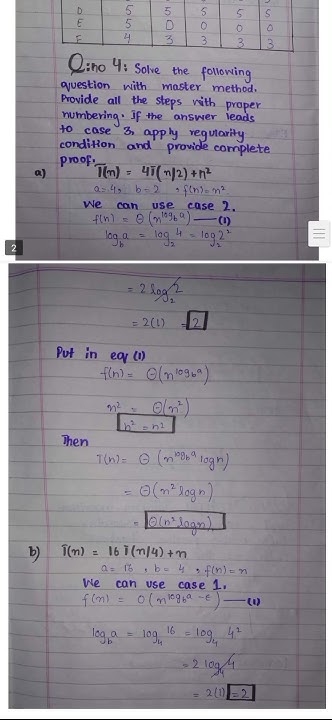 D 5 5 5 5 5
E 5 0 0 0 0
F 4 3 3 3 3
Q:no 4: Solve the following
question with master method.
Provide all the steps with proper
numbering. If the answer leads
to case 3, apply regularity
condition and provide complete
proof.
a) T(n) = 4T(n/2) + n²
a = 4, b = 2, f(n) = n²
We can use case 2.
f(n) = Θ(n^log_b a) — (1)
log_b a = log_2 4 = log_2 2²
2
= 2 log_2 2
= 2(1) = 2
Put in eq (1)
f(n) = Θ(n^log_b a)
n² = Θ(n²)
n² = n²
Then
T(n) = Θ(n^log_b a log n)
= Θ(n² log n)
= Θ(n² log n)
b) T(n) = 16 T(n/4) + n
a = 16, b = 4, f(n) = n
We can use case 1.
f(n) = O(n^log_b a - ε) — (1)
log_b a = log_4 16 = log_4 4²
= 2 log_4 4
= 2(1) = 2